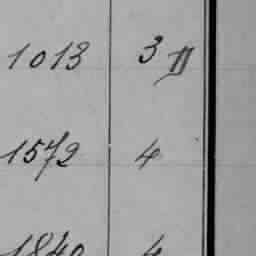 1013 3 II
1572 4
1840 4